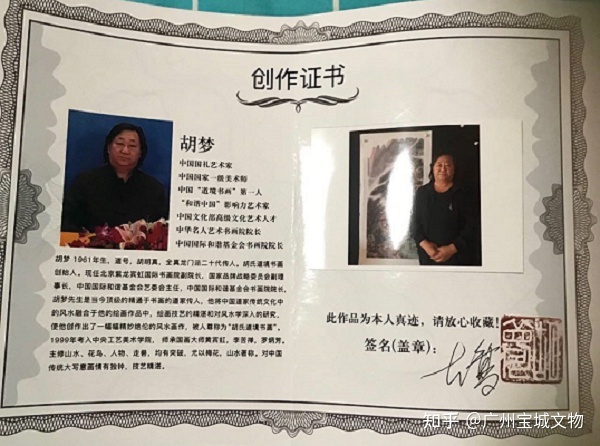 创作证书
胡梦
中国国礼艺术家
中国国家一级美术师
中国“道境书画”第一人
“和谐中国”影响力艺术家
中国文化部高级文化艺术人才
中华名人艺术书画院院长
中国国际和谐基金会书画院院长
胡梦 1961年生，道号。胡明真。全真龙门派二十代传人。胡氏道境书画
创始人。现任北京紫龙宾虹国际书画院副院长，国家品牌战略委员会副理
事长，中国国际和谐基金会艺委会主任，中国国际和谐基金会书画院院长。
胡梦先生是当今顶级的精通于书画的道家传人，他将中国道家传统文化中
的风水融合于他的绘画作品中，绘画技艺的精湛和对风水学深入的研究，
使他创作出了一幅幅精妙绝伦的风水画作，被人尊称为“胡氏道境书画”。
1999年考入中央工艺美术学院，师承国画大师黄宾虹，李苦禅，罗炳芳。
主修山水、花鸟、人物、走兽，均有突破，尤以梅花，山水著称。对中国
传统大写意画情有独钟，技艺精湛。
此作品为本人真迹，请放心收藏！
签名(盖章)：
知乎 @广州宝城文物